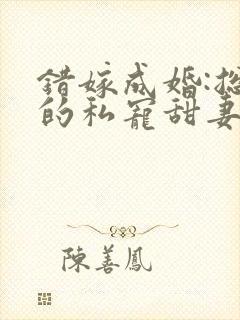 錯嫁成婚:總
的私寵甜妻
陳善鳳